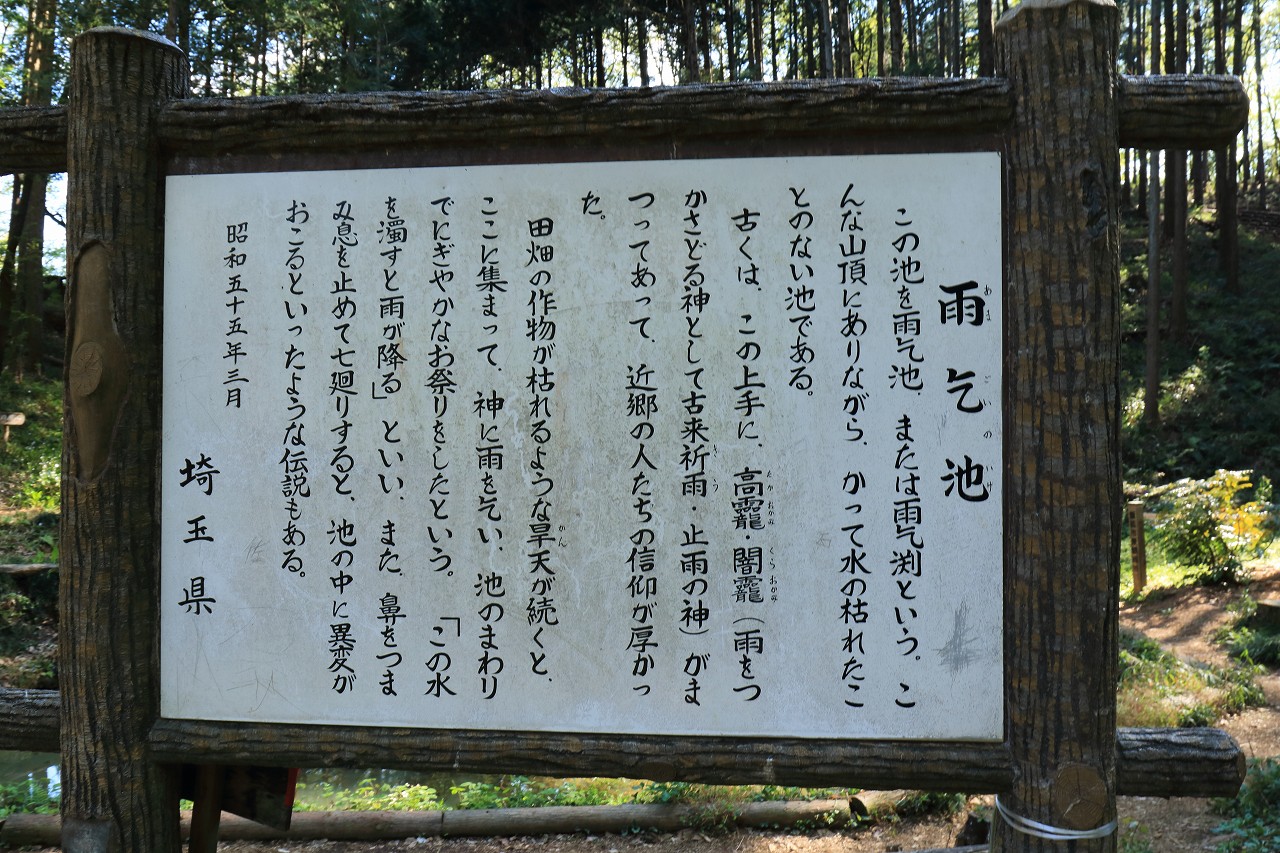 雨乞池
あまごいのいけ
この池を雨乞池、または雨乞渕という。こ
んな山頂にありながら、かって水の枯れたこ
とのない池である。
古くは、この上手に、高龗・闇龗(雨をつ
たかおかみ くらおかみ
かさどる神として古来祈雨・止雨の神)がま
きう
つってあって、近郷の人たちの信仰が厚かっ
た。
田畑の作物が枯れるような旱天が続くと、
かん
ここに集まって、神に雨を乞い、池のまわり
でにぎやかなお祭りをしたという。「この水
を濁すと雨が降る」といい、また、鼻をつま
み息を止めて七廻りすると、池の中に異変が
おこるといったような伝説もある。
昭和五十五年三月
埼玉県